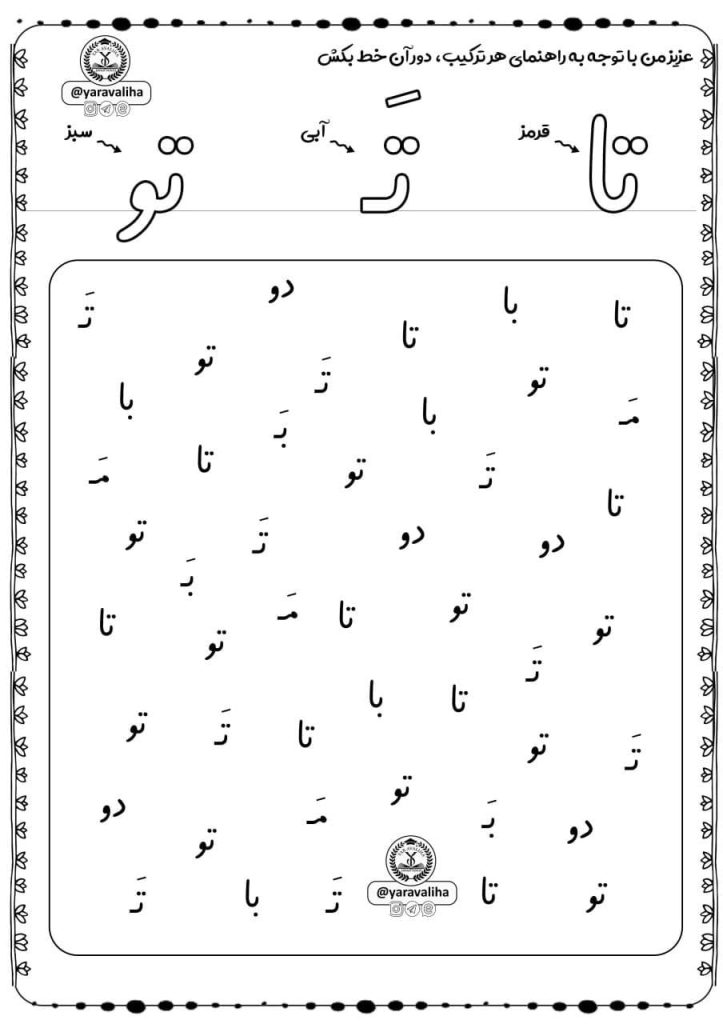 عزیز من با توجه به راهنمای هر ترکیب، دور آن خط بکش
@yaravaliha
قرمز تا آبی تَـ سبز تو
تا با دو تَـ
تا تو
تو تَـ با
مَـ با بَـ
تَـ تو تا مَـ
تا
دو دو تَـ تو
بَـ
تو تو تا مَـ تا
تو
تَـ
تا با
تو تا تَـ تو
تَـ
تو
دو بَـ مَـ دو
تو
تو تا تَـ با تَـ
@yaravaliha